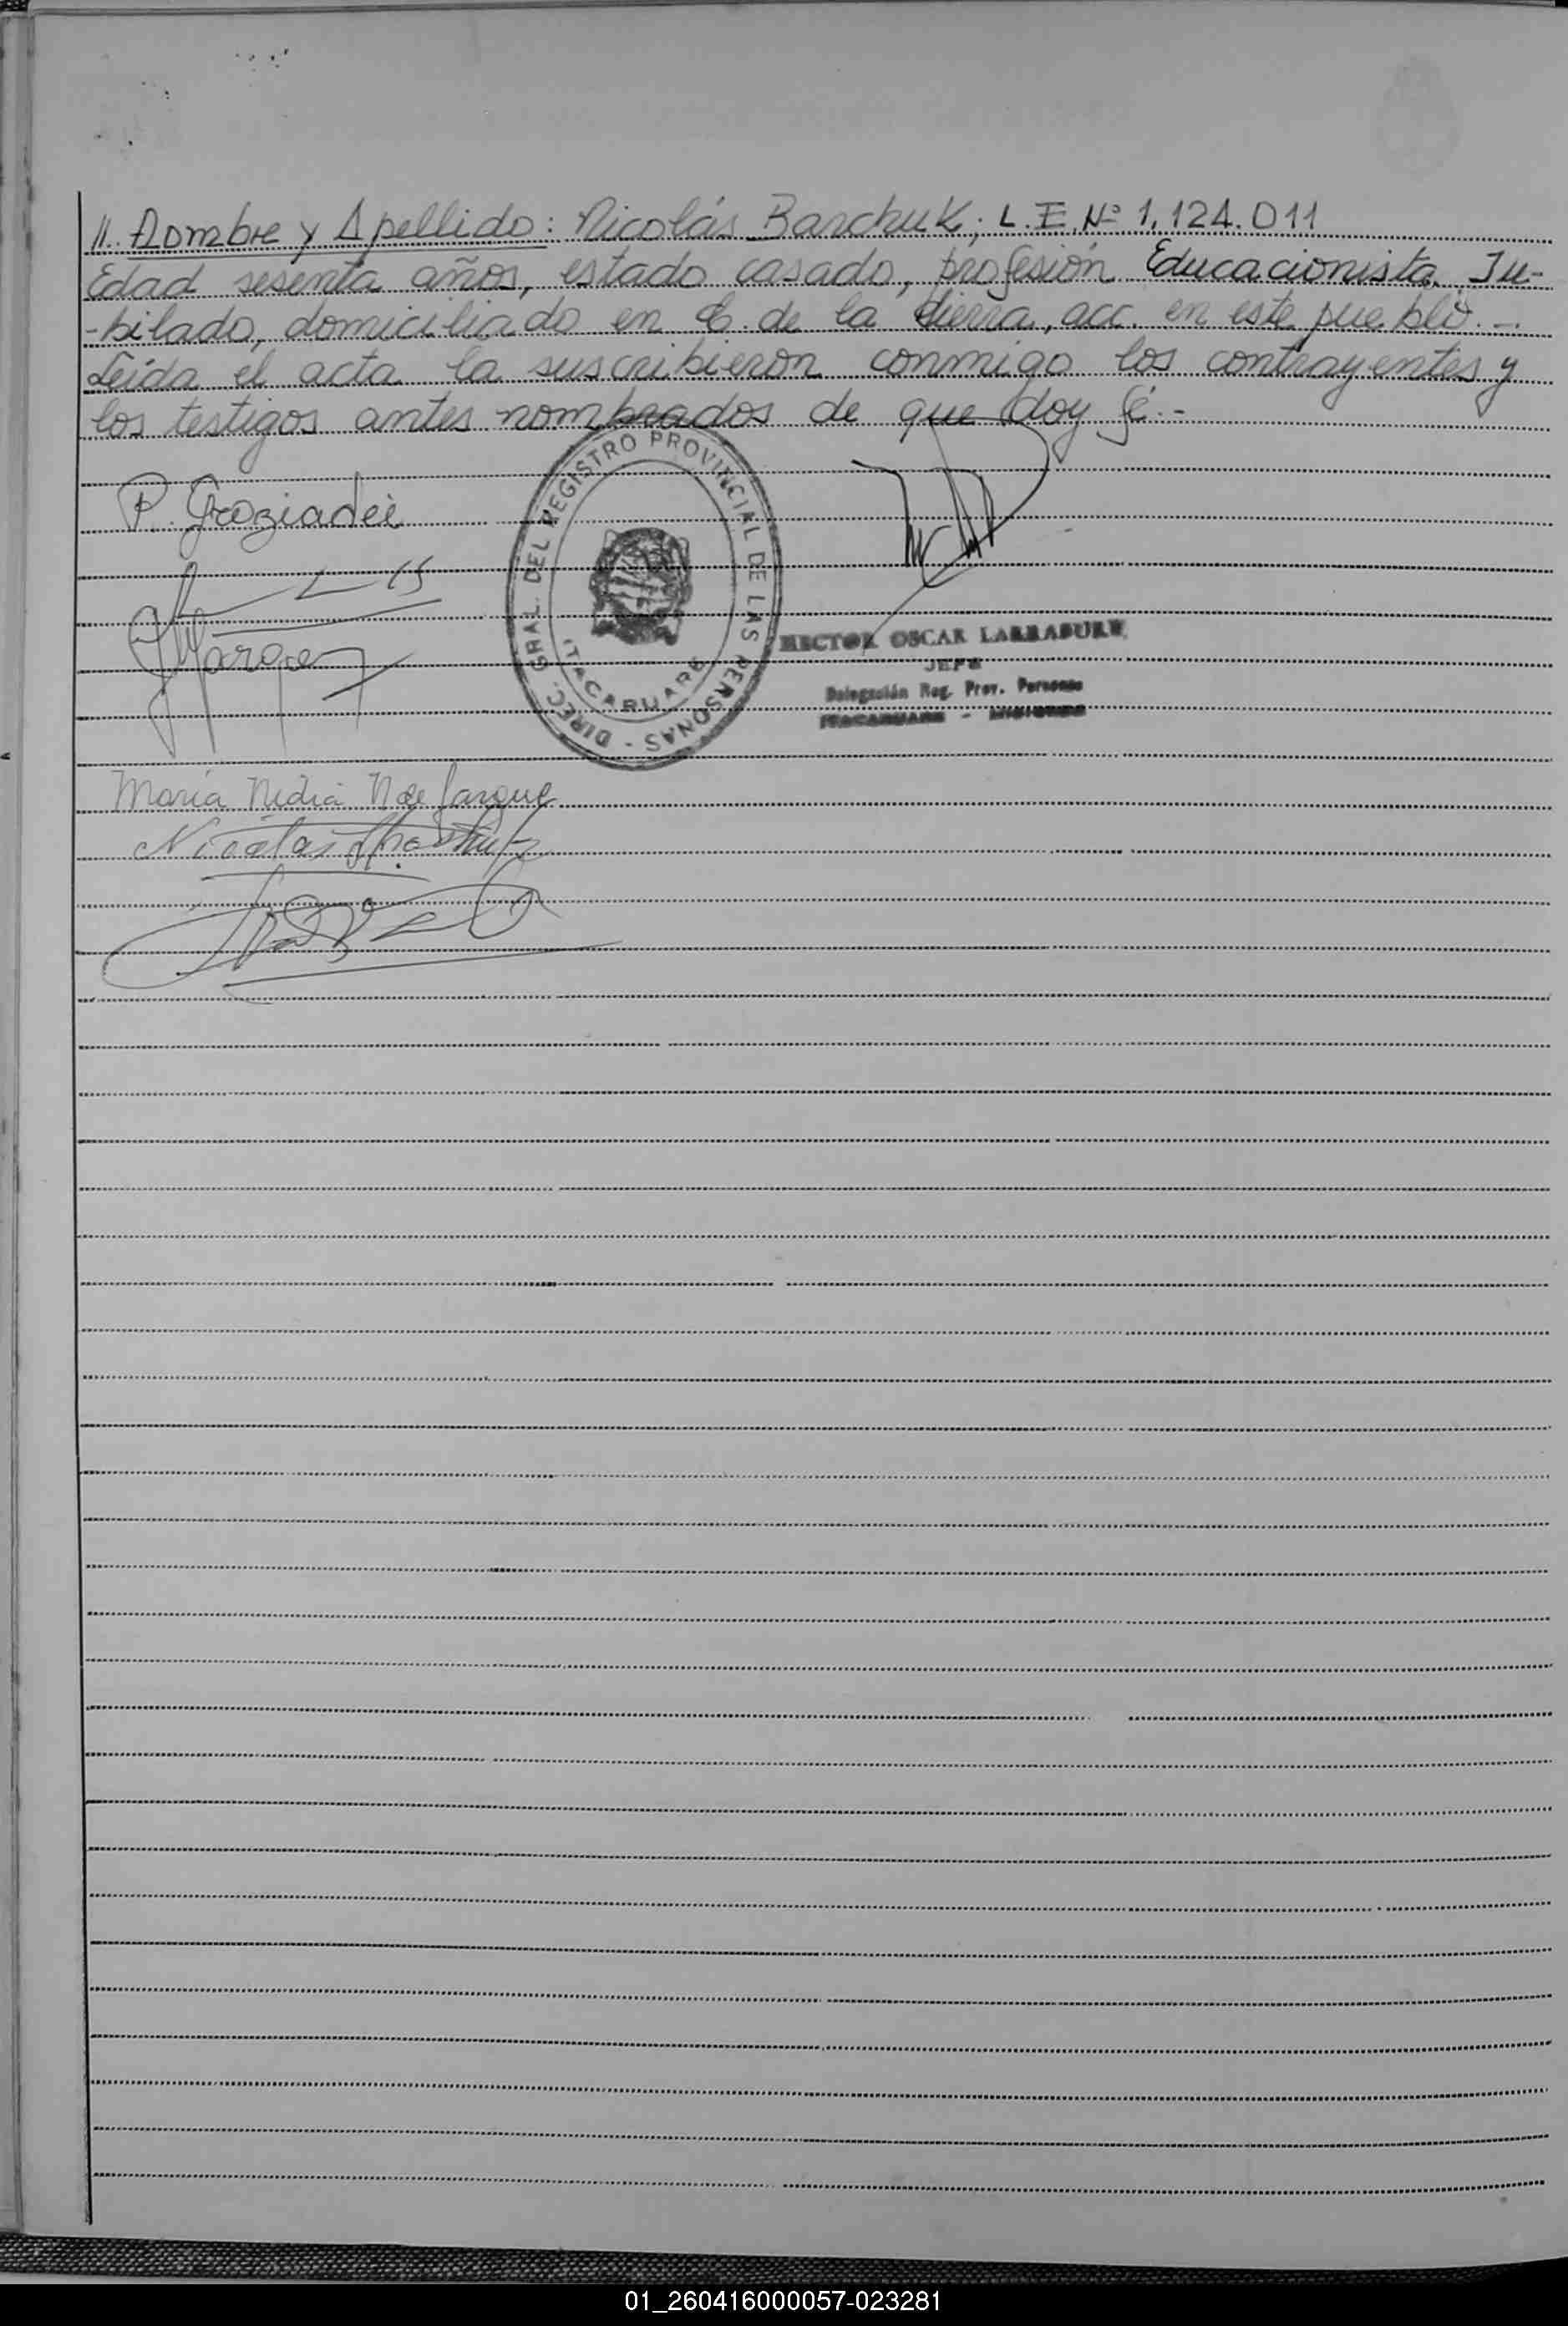 II. Nombre y Apellido: Nicolás Barchuk; L.E.Nº 1.124.011
Edad sesenta años, estado casado, profesión Educacionista Ju-
-bilado, domiciliado en C. de la Sierra, acc. en este pueblo.-
Leída el acta la suscribieron conmigo los contrayentes y
los testigos antes nombrados de que doy fé.-
DIREC. GRAL. DEL REGISTRO PROVINCIAL DE LAS PERSONAS -
ITACARUARE
P. Graziadei
HECTOR OSCAR LARRABURE
JEFE
Delegación Reg. Prov. Personas
ITACARUARE - MISIONES
María Nidia N de Jarque
Nicolas
01_260416000057-023281